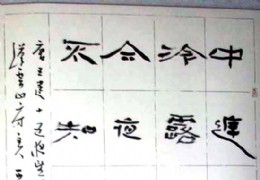 中庭
冷露
今夜
不知
唐王建十五夜望